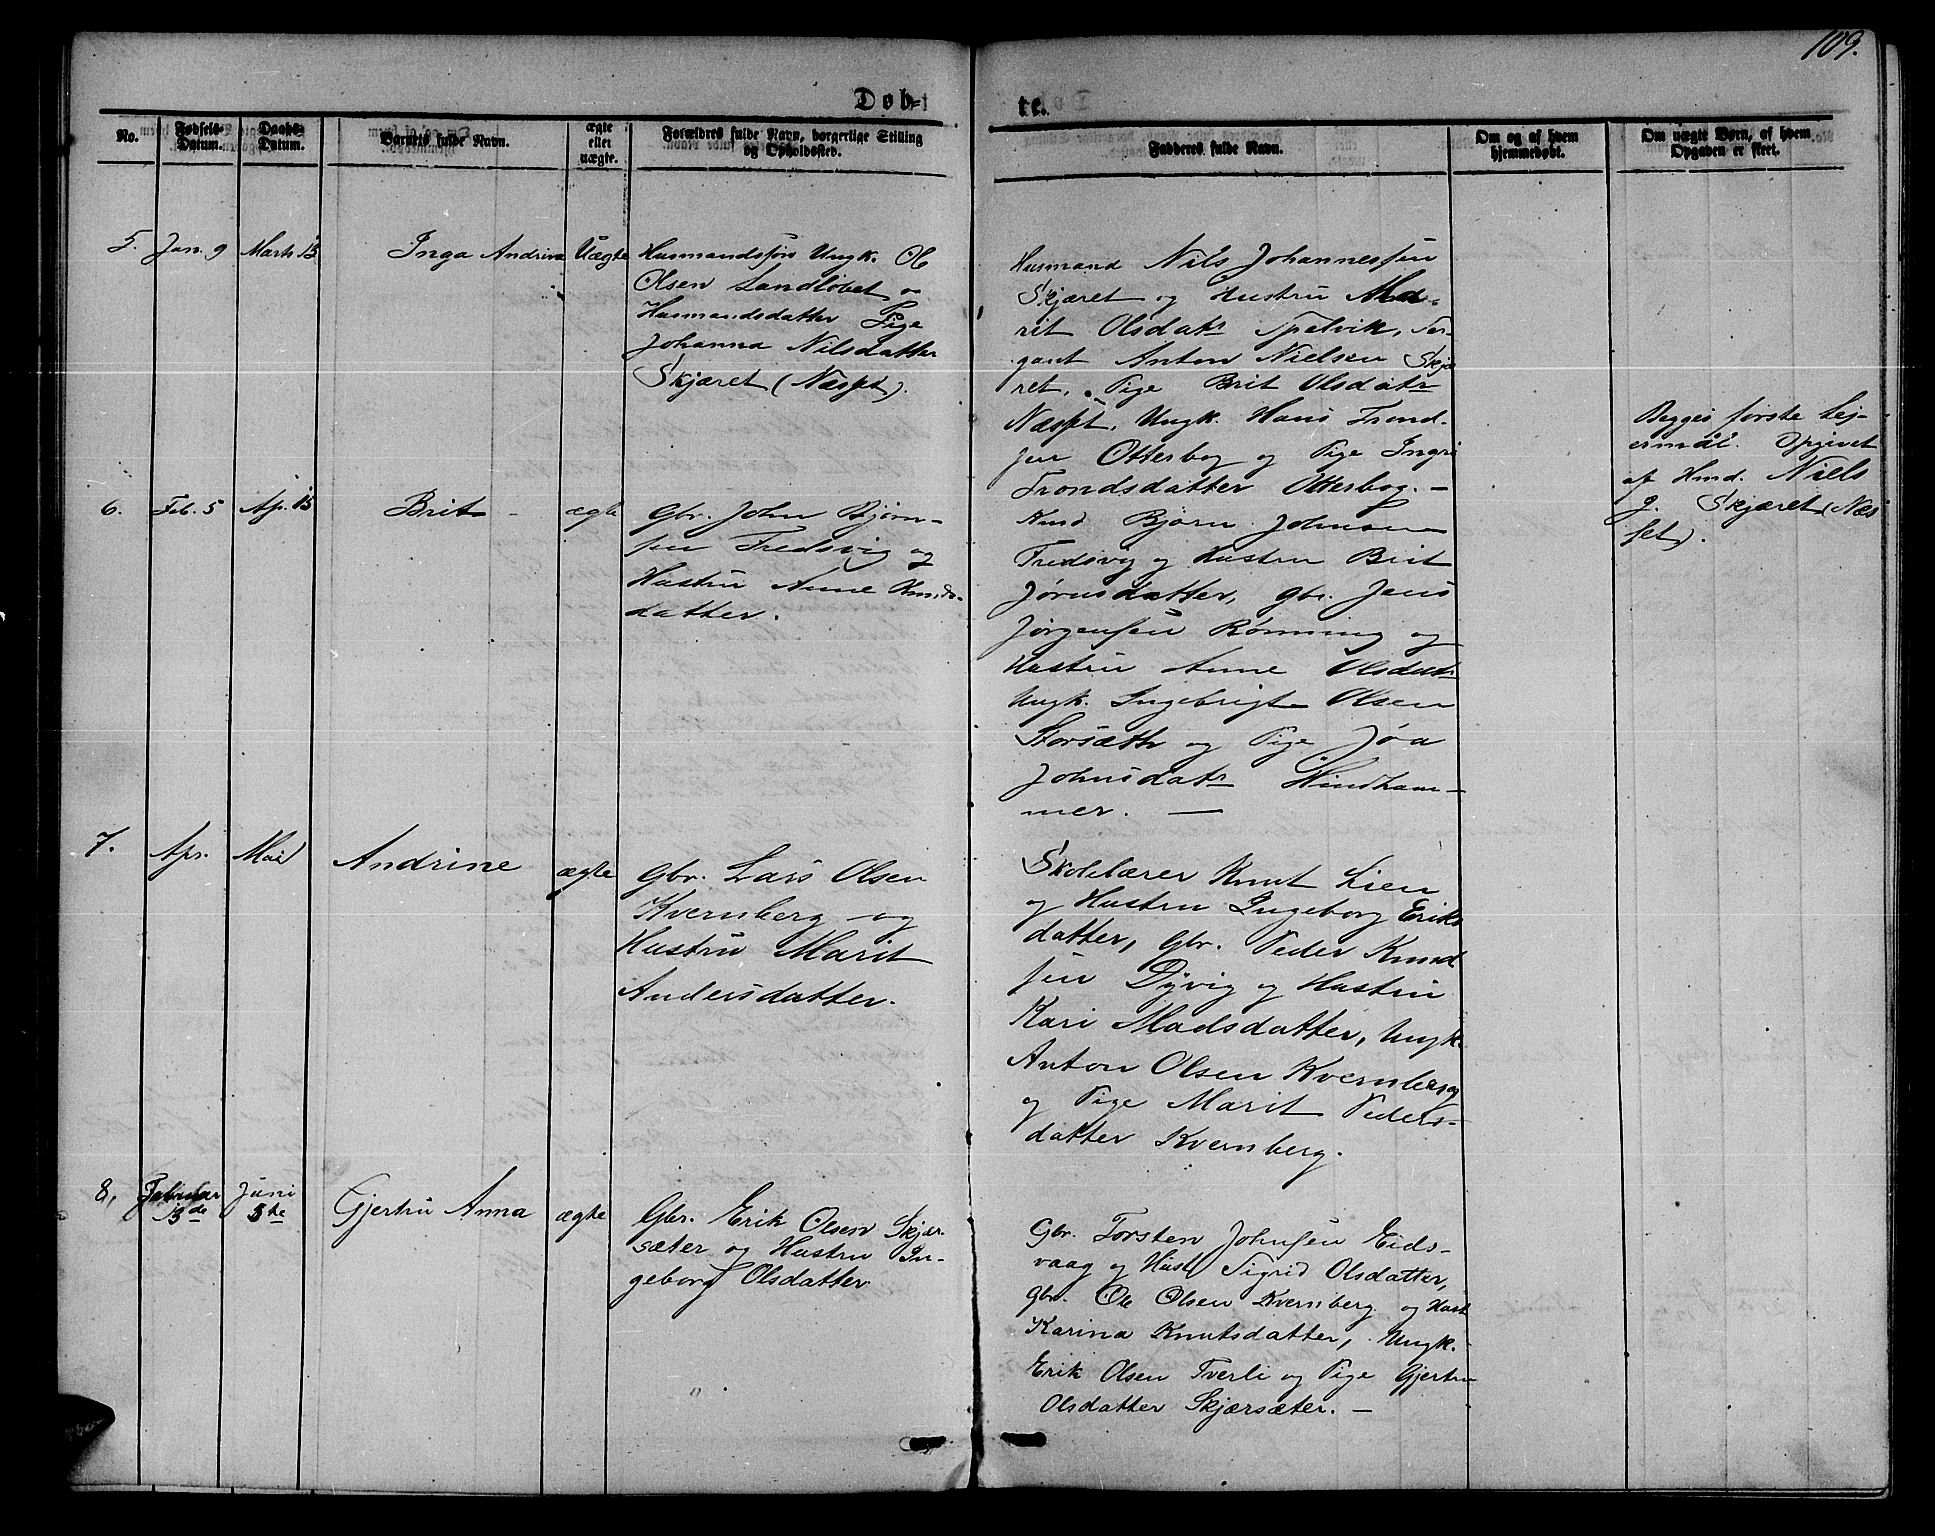 109.
Døb-
te.
No.
Fødsels-
Datum.
Daabs-
Datum.
Barnets fulde Navn.
ægte
eller
uægte.
Forældres fulde Navn, borgerlige Stilling
og Opholdssted.
Fadderes fulde Navn.
Om og af hvem
hjemmedøbt.
Om uægte Børn, af hvem
Opgaven er skeet.
5.
Jan. 9
Marts 15
Inga Andrine
Uægte
Husmandssøn Ungk. Ole
Olsen Sandløbet og
Husmandsdatter Pige
Johanna Nilsdatter
Skjæret (Næsset).
Husmand Nils Johannessen
Skjæret og Hustru Ma-
rit Olsdatr Spelvik, Ser-
gant Anton Nielsen Skjæ
ret, Pige Brit Olsdatr
Næsset, Ungk. Hans Trond-
sen Otterbog og Pige Ingri
Trondsdatter Otterbog. —
Begges første Lej-
ermål. Opgivet
af Hmd. Niels
J. Skjæret (Næs
set).
6.
Feb. 5
Ap. 15
Brit
ægte
Gbr. John Bjørn-
sen Fredsvig og
Hustru Anne Knuds-
datter.
Knud Bjørn Johnsen
Fredsvig og Hustru Brit
Jørnsdatter, Gbr. Jens
Jørgensen Rønning og
Hustru Anne Olsdatr
Ungk. Ingebrigt Olsen
Storsæth og Pige Jøa
Johnsdatr Hindham-
mer. —
7.
Apr.
Mai
Andrine
ægte
Gbr. Lars Olsen
Kvernberg og
Hustru Marit
Andersdatter.
Skolelærer Knut Lien
og Hustru Ingeborg Eriks
datter, Gbr. Peder Knud
sen Dyvig og Hustru
Kari Madsdatter, Ungk.
Anton Olsen Kvernberg
og Pige Marit Peders-
datter Kvernberg.
8,
Februar
13de
Juni
5te
Gjertru Anna
ægte
Gbr. Erik Olsen Skjær-
sæter og Hustru In-
geborg Olsdatter
Gbr. Torsten Johnsen Eids-
vaag og Hust Sigrid Olsdatter,
Gbr. Ole Olsen Kvernberg og Hust
Karina Knutsdatter, Ungk.
Erik Olsen Tverli og Pige Gjertru
Olsdatter Skjærsæter. —